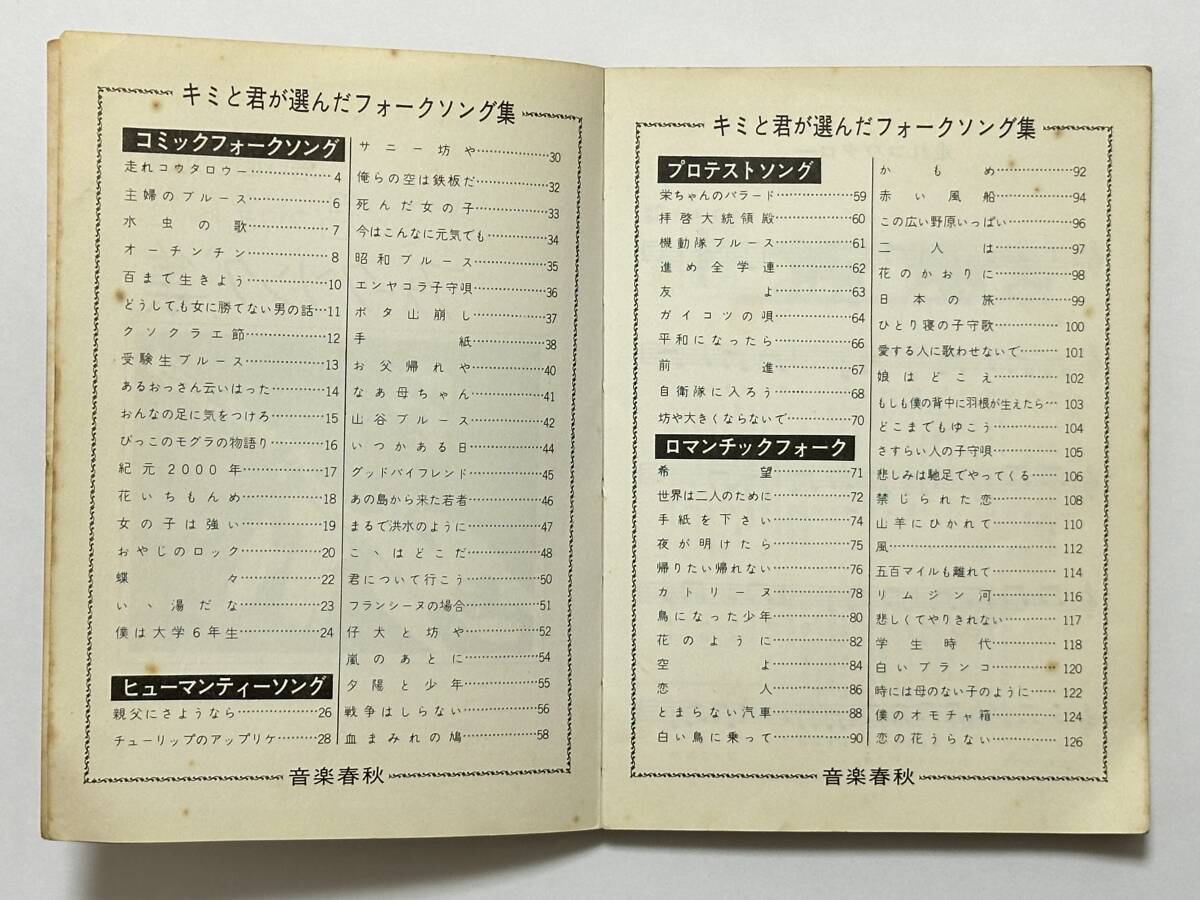 キミと君が選んだフォークソング集
コミックフォークソング
走れコウタロウー……………4
主婦のブルース……………6
水虫の歌……………7
オーチンチン……………8
百まで生きよう……………10
どうしても女に勝てない男の話…11
クソクラエ節……………12
受験生ブルース……………13
あるおっさん云いはった…………14
おんなの足に気をつけろ…………15
びっこのモグラの物語り…………16
紀元2000年……………17
花いちもんめ……………18
女の子は強い……………19
おやじのロック……………20
蝶々……………22
いゝ湯だな……………23
僕は大学6年生……………24
ヒューマンティーソング
親父にさようなら……………26
チューリップのアップリケ………28
サニー坊や……………30
俺らの空は鉄板だ……………32
死んだ女の子……………33
今はこんなに元気でも…………34
昭和ブルース……………35
エンヤコラ子守唄……………36
ボタ山崩し……………37
手紙……………38
お父帰れや……………40
なあ母ちゃん……………41
山谷ブルース……………42
いつかある日……………44
グッドバイフレンド……………45
あの島から来た若者……………46
まるで洪水のように……………47
こゝはどこだ……………48
君について行こう……………50
フランシーヌの場合……………51
仔犬と坊や……………52
嵐のあとに……………54
夕陽と少年……………55
戦争はしらない……………56
血まみれの鳩……………58
音楽春秋
キミと君が選んだフォークソング集
プロテストソング
栄ちゃんのバラード……………59
拝啓大統領殿……………60
機動隊ブルース……………61
進め全学連……………62
友よ……………63
ガイコツの唄……………64
平和になったら……………66
前進……………67
自衛隊に入ろう……………68
坊や大きくならないで…………70
ロマンチックフォーク
希望……………71
世界は二人のために……………72
手紙を下さい……………74
夜が明けたら……………75
帰りたい帰れない……………76
カトリーヌ……………78
鳥になった少年……………80
花のように……………82
空よ……………84
恋人……………86
とまらない汽車……………88
白い鳥に乗って……………90
かもめ……………92
赤い風船……………94
この広い野原いっぱい…………96
二人は……………97
花のかおりに……………98
日本の旅……………99
ひとり寝の子守歌……………100
愛する人に歌わせないで………101
娘はどこえ……………102
もしも僕の背中に羽根が生えたら…103
どこまでもゆこう……………104
さすらい人の子守唄……………105
悲しみは馳足でやってくる……106
禁じられた恋……………108
山羊にひかれて……………110
風……………112
五百マイルも離れて……………114
リムジン河……………116
悲しくてやりきれない…………117
学生時代……………118
白いブランコ……………120
時には母のない子のように……122
僕のオモチャ箱……………124
恋の花うらない……………126
音楽春秋